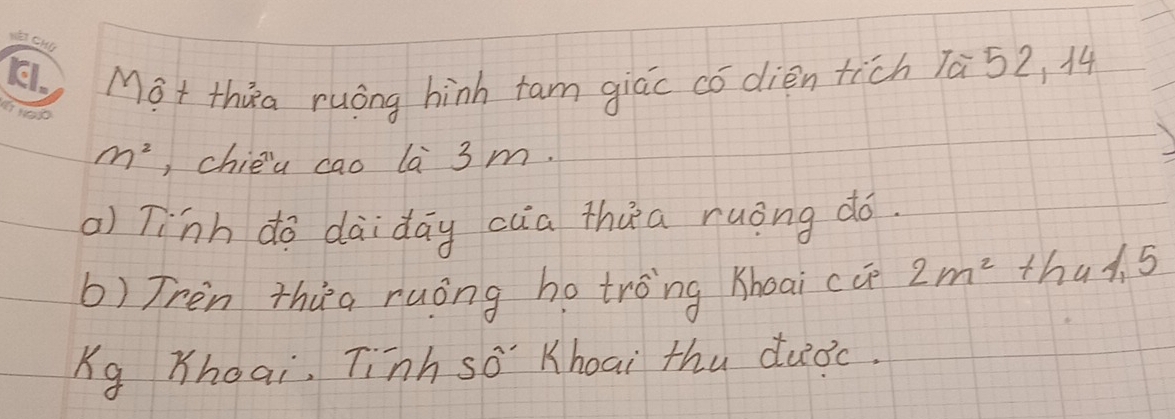 NÉT CHỮ
KL.
NẾT NGƯỜI
Một thửa ruộng hình tam giác có diện tích là 52,14
m², chiều cao là 3 m.
a) Tính độ dài đáy của thửa ruộng đó.
b) Trên thửa ruộng họ trồng Khoai cứ 2m² thu 1,5
Kg Khoai. Tính số Khoai thu được.